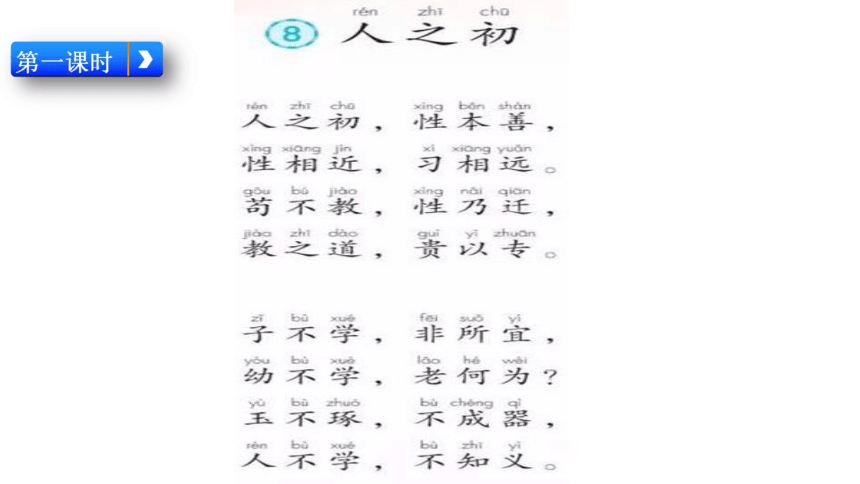 第一课时
rén zhī chū
8 人之初
rén zhī chū xìng běn shàn
人之初，性本善，
xìng xiāng jìn xí xiāng yuǎn
性相近，习相远。
gǒu bú jiào xìng nǎi qiān
苟不教，性乃迁，
jiào zhī dào guì yǐ zhuān
教之道，贵以专。
zǐ bù xué fēi suǒ yí
子不学，非所宜，
yòu bù xué lǎo hé wéi
幼不学，老何为？
yù bù zhuó bù chéng qì
玉不琢，不成器，
rén bù xué bù zhī yì
人不学，不知义。